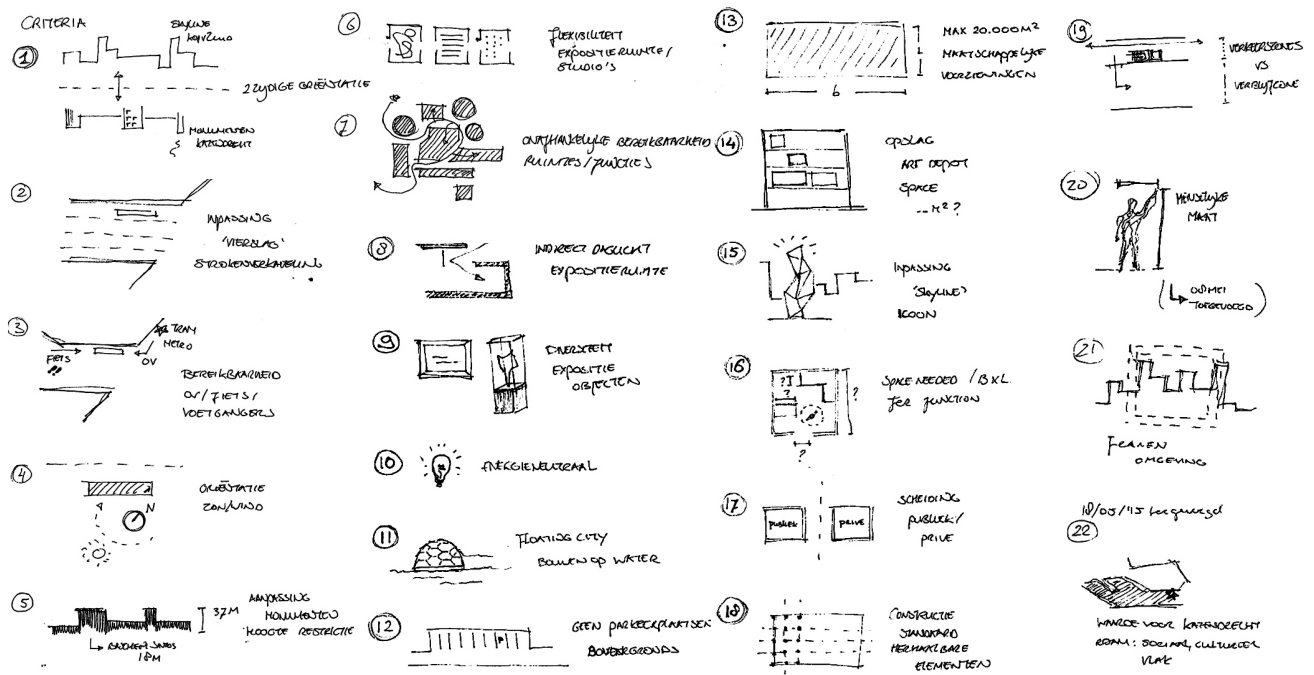 CRITERIA
1
SKYLINE
KOP/ZUID
2 ZIJDIGE ORIËNTATIE
MONUMENTEN
KATENDRECHT
2
INPASSING
'VIERSLAG'
STROKENVERKAVELING
3
TRAM
METRO
FIETS
OV
BEREIKBAARHEID
OV/FIETS/
VOETGANGERS
4
ORIËNTATIE
ZON/WIND
N
5
37M
AANPASSING
MONUMENTEN
HOOGTE RESTRICTIE
18M
6
FLEXIBILITEIT
EXPOSITIERUIMTE/
STUDIO'S
7
ONAFHANKELIJKE BEREIKBAARHEID
RUIMTES/FUNCTIES
8
INDIRECT DAGLICHT
EXPOSITIERUIMTE
9
DIVERSITEIT
EXPOSITIE
OBJECTEN
10
ENERGIENEUTRAAL
11
FLOATING CITY
BOUWEN OP WATER
12
P
GEEN PARKEERPLAATSEN
BOVENGRONDS
13
MAX 20.000M²
MAATSCHAPPELIJKE
VOORZIENINGEN
b
14
OPSLAG
ART DEPOT
SPACE
-- M² ?
15
INPASSING
'SKYLINE'
ICOON
16
?
?
?
?
SPACE NEEDED / BXL
PER FUNCTION
17
PUBLIEK
PRIVE
SCHEIDING
PUBLIEK/
PRIVE
18
CONSTRUCTIE
STANDAARD
HERHAALBARE
ELEMENTEN
19
VERKEERSZONES
VS
VERBLIJFZONE
20
MENSELIJKE
MAAT
(
TOEGEVOEGD)
21
FRAMEN
OMGEVING
18/05/'15 toegevoegd
22
WAARDE VOOR KATENDRECHT
RDAM: SOCIAAL, CULTUREEL
VLAK